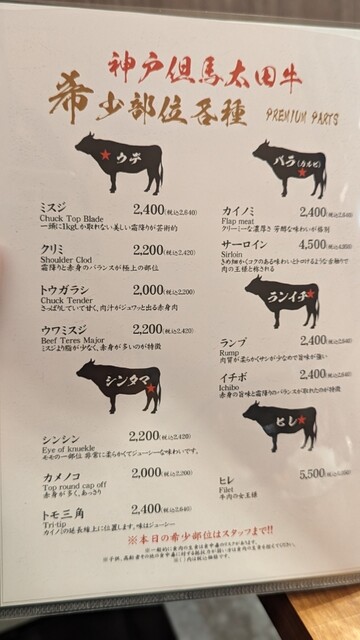 神戸但馬太田牛
希少部位各種 PREMIUM PARTS
ウデ
ミスジ 2,400(税込2,640)
Chuck Top Blade
一頭に1kgしか取れない美しい霜降りが芸術的
クリミ 2,200(税込2,420)
Shoulder Clod
霜降りと赤身のバランスが極上の部位
トウガラシ 2,000(税込2,200)
Chuck Tender
さっぱりしていて甘く、肉汁がジュワッと出る赤身肉
ウワミスジ 2,200(税込2,420)
Beef Teres Major
ミスジより脂が少なく、赤身が多いのが特徴
シンタマ
シンシン 2,200(税込2,420)
Eye of knuekle
モモの一部位 非常に柔らかくてジューシーな味わいです。
カメノコ 2,000(税込2,200)
Top round cap off
赤身が多く、あっさり
トモ三角 2,400(税込2,640)
Tri-tip
カイノミの延長線上に位置します。味はジューシー
バラ(カルビ)
カイノミ 2,400(税込2,640)
Flap meat
クリーミーな濃厚さ 芳醇な味わいが格別
サーロイン 4,500(税込4,950)
Sirloin
きめ細かくコクのある味わいとトロけるような食触りで
肉の王様と称される
ランイチ
ランプ 2,400(税込2,640)
Rump
肉質が柔らかくサシが少なめで旨味が強い
イチボ 2,400(税込2,640)
Ichibo
赤身の旨味と霜降りのバランスが取れたのが特徴
ヒレ
ヒレ 5,500
Filet
牛肉の女王様
※本日の希少部位はスタッフまで!!
※( )内は税込価格です。